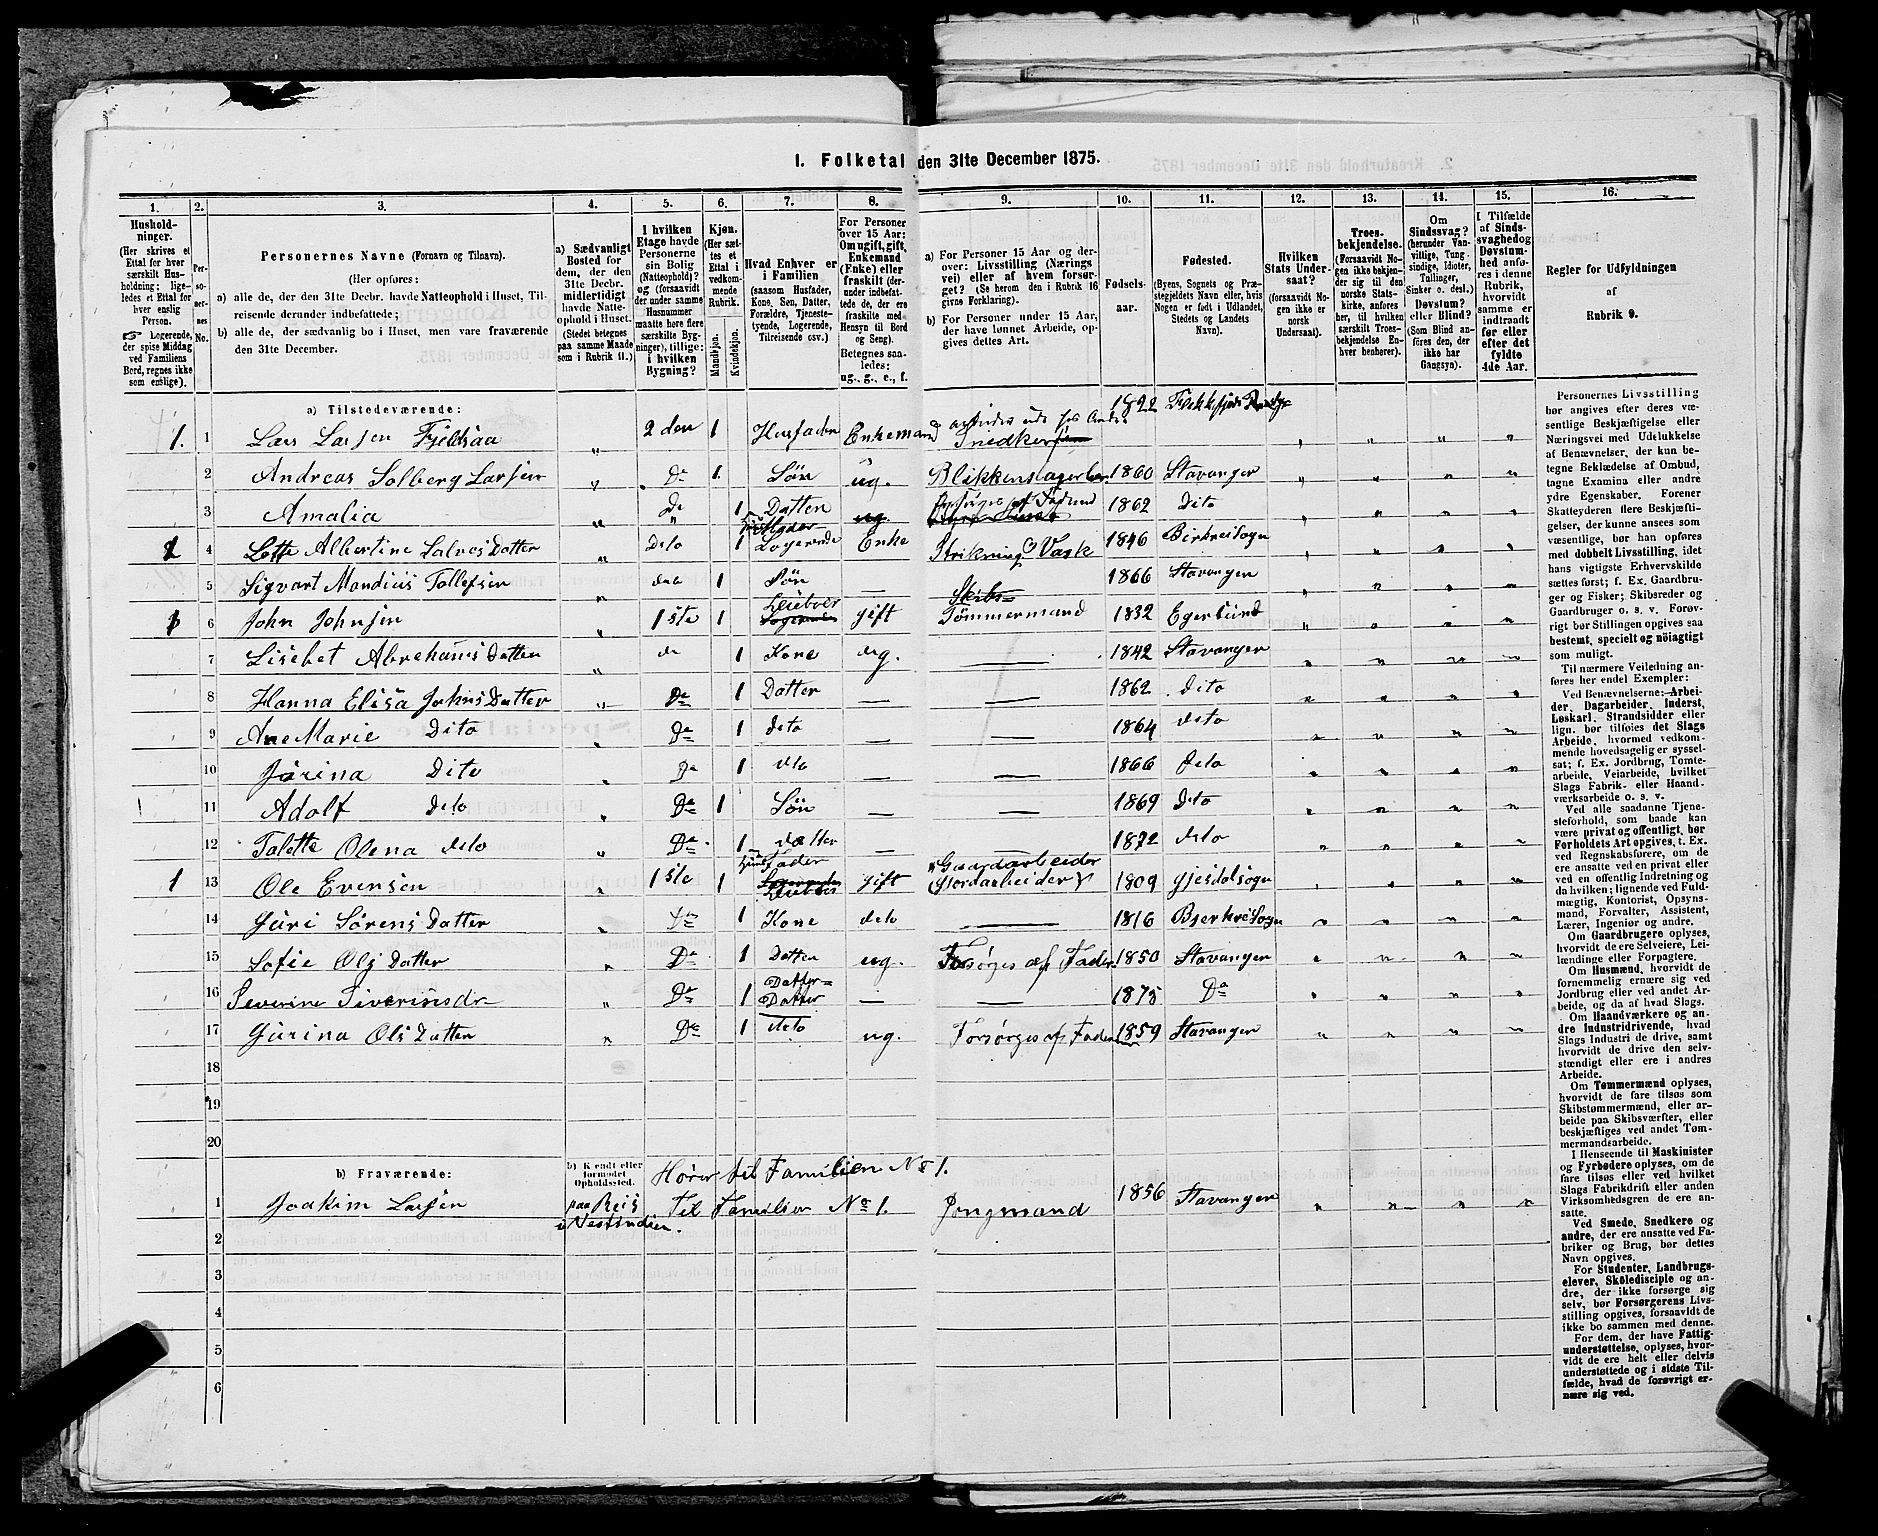 1. Folketal den 31te December 1875.
1. 2. 3. 4. 5. 6. 7. 8. 9. 10. 11. 12. 13. 14. 15. 16.
Hushold-
ninger.
(Her skrives et
Ettal for hver
særskilt Hus-
holdning; lige-
ledes et Ettal for
hver enslig
Person.
Logerende,
der spise Middag
ved Familiens
Bord, regnes ikke
som enslige).
Per-
so-
ner-
nes
No.
Personernes Navne (Fornavn og Tilnavn).
(Her opføres:
a) alle de, der den 31te Decbr. havde Natteophold i Huset, Til-
reisende derunder indbefattede;
b) alle de, der sædvanlig bo i Huset, men vare fraværende
den 31te December.
a) Sædvanligt
Bosted for
dem, der den
31te Decbr.
midlertidigt
havde Natte-
ophold i Huset.
(Stedet betegnes
paa samme Maade
som i Rubrik 11.)
I hvilken
Etage havde
Personerne
sin Bolig
(Natteophold)?
og (forsaavidt
der under samme
Husnummer
maatte høre flere
særskilte Byg-
ninger), tillige:
i hvilken
Bygning?
Kjøn.
(Her sæt-
tes et
Ettal i
vedkom-
mende
Rubrik.
Mandkjøn.
Kvindekjøn.
Hvad Enhver er
i Familien
(saasom Husfader,
Kone, Søn, Datter,
Forældre, Tjeneste-
tyende, Logerende,
Tilreisende osv.)
For Personer
over 15 Aar:
Om ugift, gift,
Enkemand
(Enke) eller
fraskilt (der-
under indbefat-
tede de, der ere
fraskilte med
Hensyn til Bord
og Seng).
Betegnes saa-
ledes:
ug., g., e., f.
a) For Personer 15 Aar og der-
over: Livsstilling (Nærings
vei) eller af hvem forsør-
get? (Se herom den i Rubrik 16
givne Forklaring).
b) For Personer under 15 Aar,
der have lønnet Arbeide, op-
gives dettes Art.
Fødsels-
aar.
Fødested.
(Byens, Sognets og Præ-
stegjeldets Navn eller, hvis
Nogen er født i Udlandet,
Stedets og Landets
Navn).
Hvilken
Stats Under-
saat?
(forsaavidt No-
gen ikke er
norsk
Undersaat).
Troes-
bekjendelse.
(Forsaavidt No-
gen ikke bekjen-
der sig til den
norske Stats-
kirke, anføres
her, til hvilken
særskilt Troes-
bekjendelse En-
hver henhører).
Om
Sindssvag?
(herunder Van-
vittige, Tung-
sindige, Idioter,
Tullinger,
Sinker o. desl.)
Døvstum?
eller Blind?
(Som Blind an-
føres den, der
ikke har
Gangsyn).
I Tilfælde
af Sinds-
svaghed og
Døvstum-
hed anfø-
res i denne
Rubrik,
hvorvidt
samme er
indtraadt
før eller
efter det
fyldte
4de Aar.
Regler for Udfyldningen
af
Rubrik 9.
a) Tilstedeværende:
1. 1 Lars Larsen Fjeldsaa 2den 1 Husfader Enkemand arbeider ude hos Andre Snedker 1822
2 Andreas Solberg Larsen Do 1 Søn ug. Blikkenslager 1860 Stavanger
3 Amalia Do 1 Datter ug Forsørges af 1862 Dito
1 4 Lotte Albertine Salves Datter Dito 1 Logerende Enke Strikning Vask 1846 Birkreisogn
5 Sigvart Mandius Tollefsen dito 1 Søn — 1866 Stavanger
1 6 John Johnsen 1ste 1 Leieboer Logerende gift Skibs= Tømmermand 1832 Egersund
7 Lisebet Abrehams Datter do 1 Kone dog. — 1842 Stavanger
8 Hanna Elisa Johns Datter Do 1 Datter — — 1862 dito
9 Ane Marie Dito Do 1 dito — — 1864 dito
10 Jorina Dito Do 1 dto — — 1866 Dito
11 Adolf Dito Do 1 Søn — — 1869 Dito
12 Talette Olena dito Do 1 datter — — 1872 dito
1 13 Ole Evensen 1ste 1 Fader Logerende Leieboer gift Gaardarbeider (Gjordarbeider) 1809 Gjesdalsogn
14 Guri Sørens Datter Do 1 Kone dito — 1816 Bjerkreisogn
15 Sofie Ols Datter Do 1 Datter ug. Forsørges af Fader 1850 Stavanger
16 Severine Siverinsdr Do 1 Datter= Datter — — 1875 Do
17 Jurina Ols Datter Do 1 dito ug. Forsørges af Fader 1859 Stavanger
18
19
20
b) Fraværende:
b) Kendt eller
formodet
Opholdssted.
Hører til Familien No 1.
1 Joakim Larsen paa Reis i Vestindien. Til Familien No 1. Jongmand 1856 Stavanger
2
3
4
5
6
Personernes Livsstilling
bør angives efter deres væ-
sentlige Beskjæftigelse eller
Næringsvei med Udelukkelse
af Benævnelser, der kun be-
tegne Beklædelse af Ombud,
tagne Examina eller andre
ydre Egenskaber. Forener
Skatteyderen flere Beskjæfti-
gelser, der kunne ansees som
væsentlige, bør han opføres
med dobbelt Livsstilling, idet
hans vigtigste Erhvervskilde
sættes først; f. Ex. Gaardbru-
ger og Fisker; Skibsreder og
Gaardbruger o. s. v. Forøv-
rigt bør Stillingen opgives saa
bestemt, specielt og nöiagtigt
som muligt.
Til nærmere Veiledning an-
føres her endel Exempler:
Ved Benævnelserne: Arbei-
der, Dagarbeider, Inderst,
Løskarl, Strandsidder eller
lign. bør tilføies det Slags
Arbeide, hvormed vedkom-
mende hovedsagelig er syssel-
sat; f. Ex. Jordbrug, Tomte-
arbeide, Veiarbeide, hvilket
Slags Fabrik- eller Haand-
værksarbeide o. s. v.
Ved alle saadanne Tjene-
steforhold, som baade kan
være privat og offentligt, bør
Forholdets Art opgives, t. Ex.
ved Regnskabsførere, om de
ere ansatte ved en privat eller
ved en offentlig Indretning og
da hvilken; lignende ved Fuld-
mægtig, Kontorist, Opsyns-
mand, Forvalter, Assistent,
Lærer, Ingeniør og andre.
Om Gaardbrugere oplyses,
hvorvidt de ere Selveiere, Lei-
lændinge eller Forpagtere.
Om Husmænd, hvorvidt de
fornemmelig ernære sig ved
Jordbrug eller ved andet Ar-
beide, og da af hvad Slags.
Om Haandværkere og an-
dre Industridrivende, hvad
Slags Industri de drive, samt
hvorvidt de drive den selv-
stændigt eller ere i andres
Arbeide.
Om Tømmermænd oplyses,
hvorvidt de fare tilsøs som
Skibstømmermænd, eller ar-
beide paa Skibsværfter, eller
beskjæftiges ved andet Tøm-
mermandsarbeide.
I Henseende til Maskinister
og Fyrbødere oplyses, om de
fare tilsøs eller ved hvilket
Slags Fabrikdrift eller anden
Virksomhedsgren de ere an-
satte.
Ved Smede, Snedkere og
andre, der ere ansatte ved Fa-
briker og Brug, bør dettes
Navn opgives.
For Studenter, Landbrugs-
elever, Skoledisciple og an-
dre, der ikke forsørge sig
selv, bør Forsørgerens Livs-
stilling opgives, forsaavidt de
ikke bo sammen med denne.
For dem, der have Fattig-
understøttelse, oplyses, hvor-
vidt de ere helt eller delvis
understøttede og i sidste Til-
fælde, hvad de forøvrigt er-
nære sig ved.